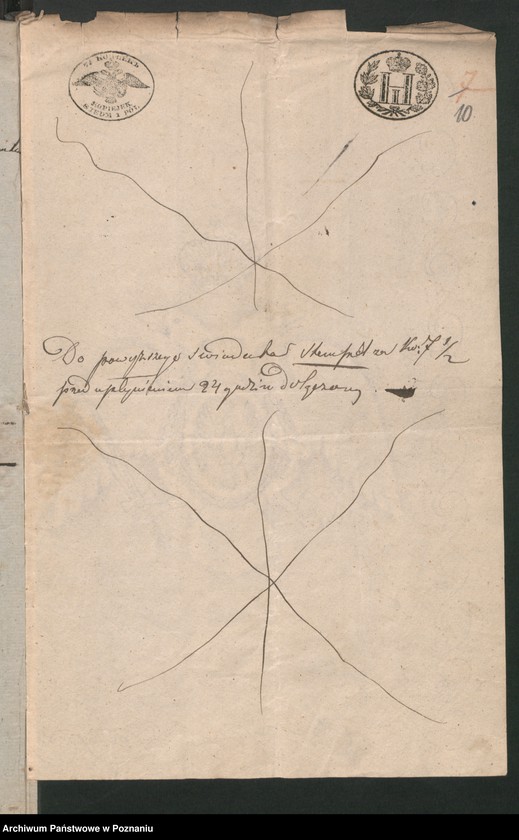 7½ КОПѢЕКЪ
KOPIEJEK
SIEDM I PÓŁ
7
10
Do powyższego świadectwa Stempel za Kop. 7 1/2
przed upłynieniem 24 godzin dołączony.
Archiwum Państwowe w Poznaniu